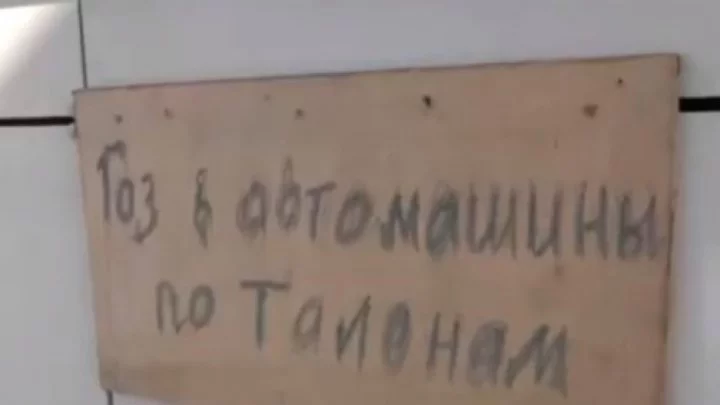 Гоз в автомашины
по Талонам